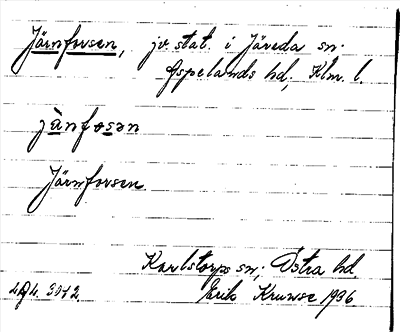 Järnforsen, jv.stat. i Järeda sn.
Aspelands hd, Klm. l.
jànfosən
Järnforsen
Karlstorps sn; Östra hd.
Erik Kruuse 1936